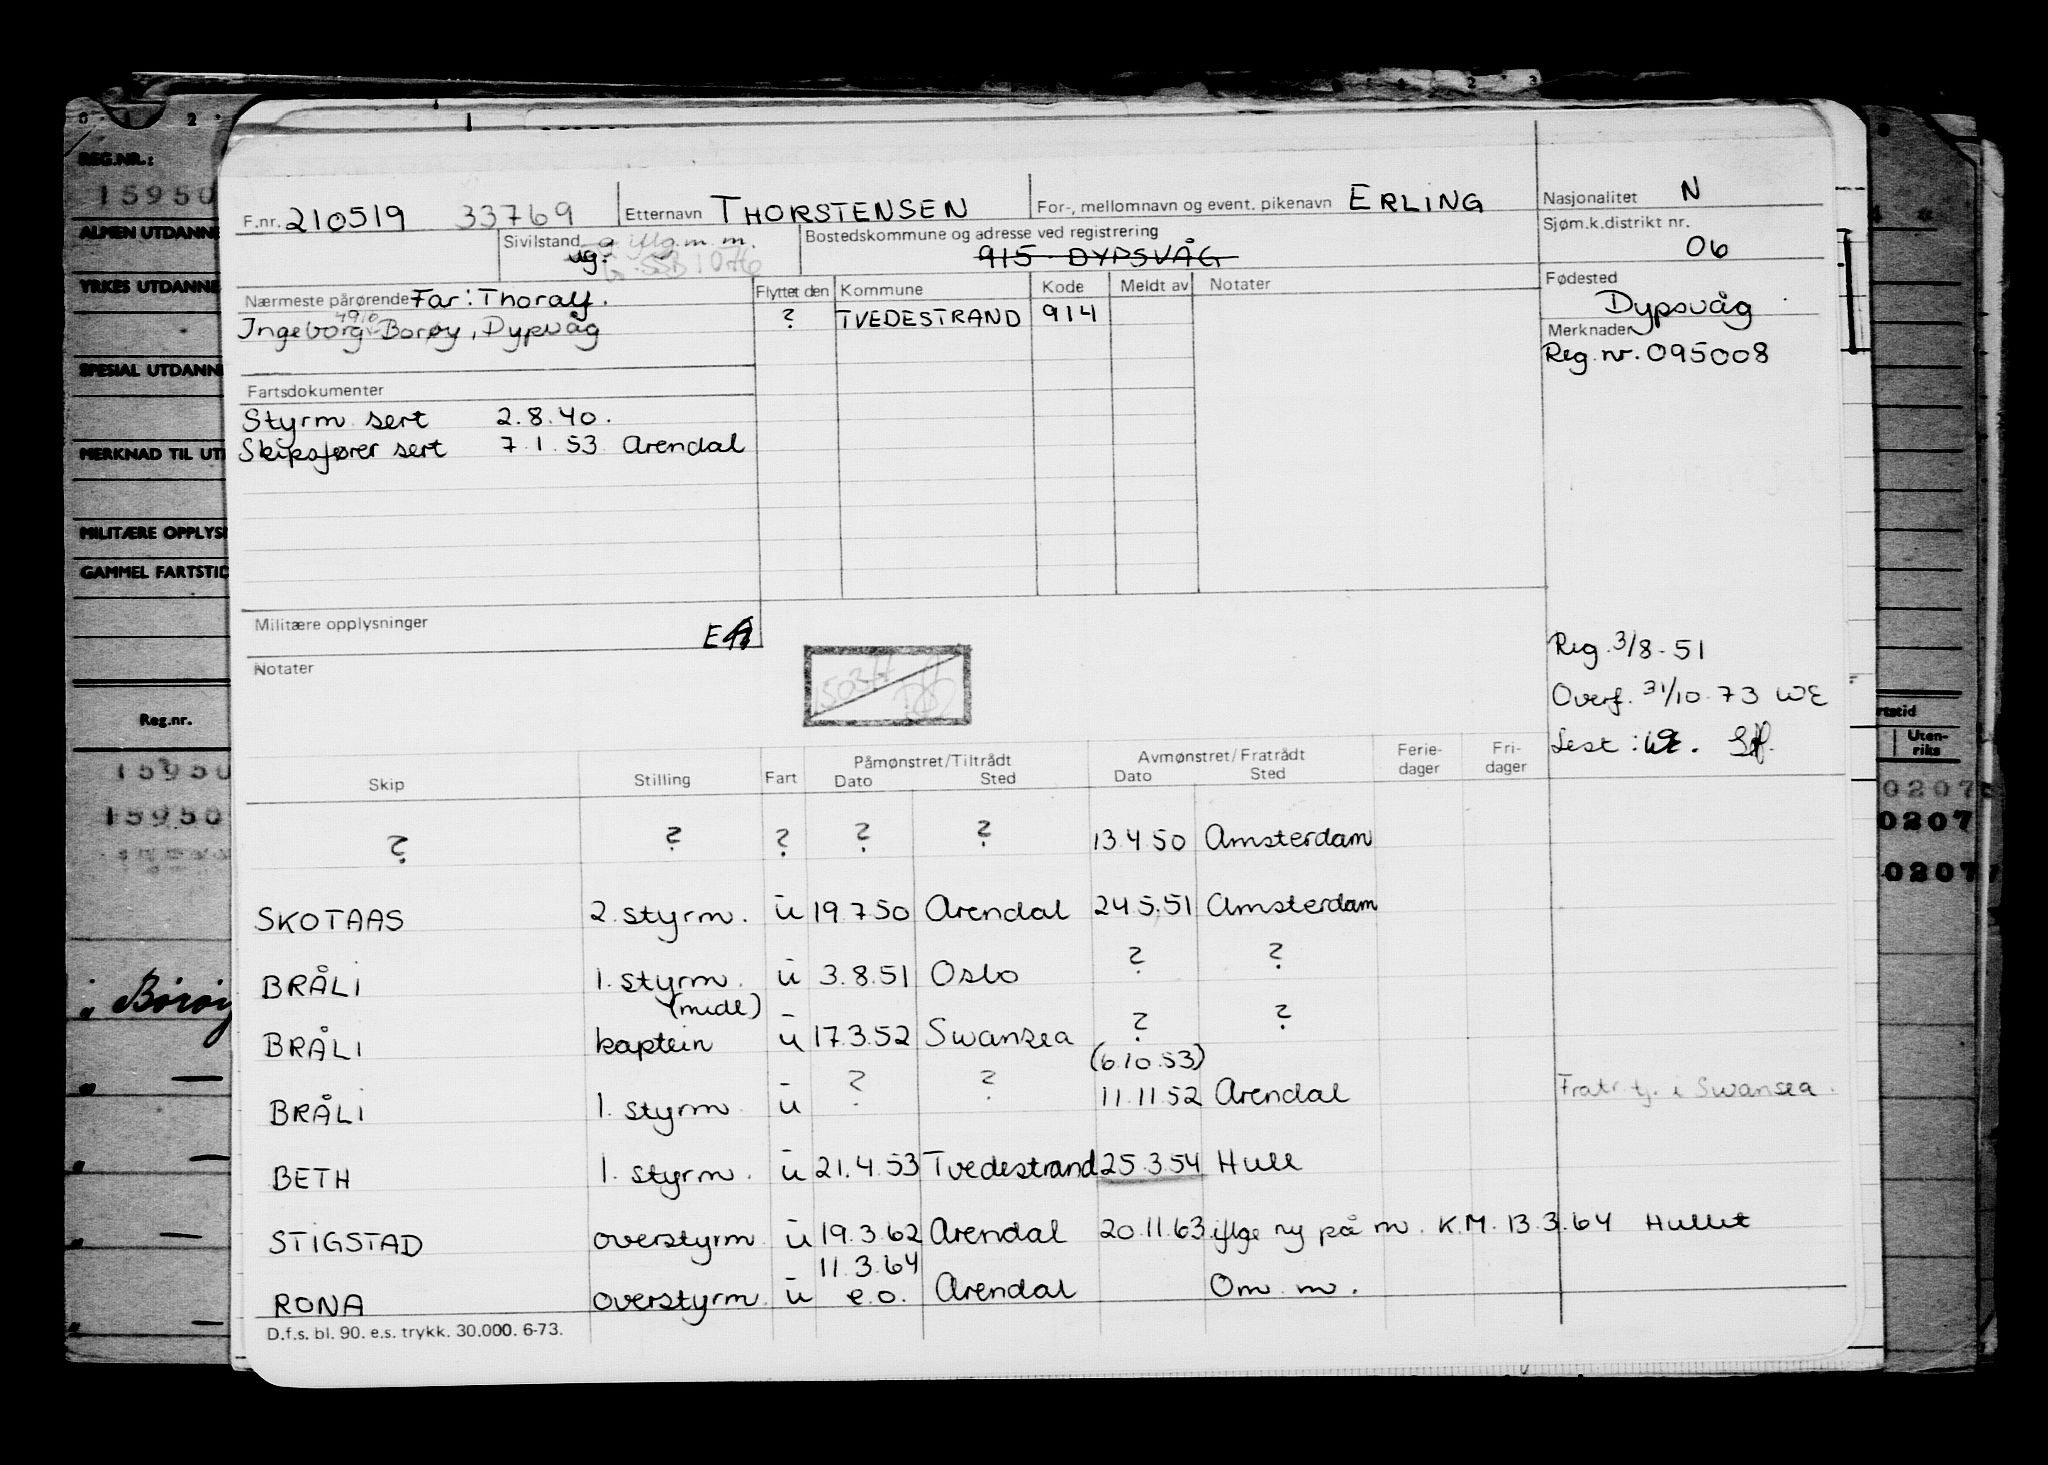 0 1 2
2 3
REG.NR.:
15950
ALMEN UTDANNE
YRKES UTDANNE
SPESIAL UTDANNE
MERKNAD TIL UT
MILITÆRE OPPLYS
GAMMEL FARTSTID
Reg.nr.
15950
15950
Borøy
F.nr. 210519 33769 Etternavn THORSTENSEN For-, mellomnavn og event. pikenavn ERLING Nasjonalitet N
Sivilstand ug. g iflg. m.m. Bostedskommune og adresse ved registrering 915 DYPSVÅG Sjøm.k.distrikt nr. 06
SSB 1076
Nærmeste pårørende Far: Thoralf. Flyttet den Kommune Kode Meldt av Notater Fødested Dypsvåg
4910
Ingeborg Borøy, Dypvåg ? TVEDESTRAND 914 Merknader
Reg. nr. 095008
Fartsdokumenter
Styrm sert 2.8.40.
Skipsfører sert 7.1.53 Arendal
Militære opplysninger
Notater
Reg. 3/8-51
Overf. 31/10.73 WE
Lest: WE.
Skip Stilling Fart Påmønstret/Tiltrådt Dato Sted Avmønstret/Fratrådt Dato Sted Ferie-dager Fri-dager
? ? ? ? ? 13.4.50 Amsterdam
SKOTAAS 2. styrm. u 19.7.50 Arendal 24.5.51 Amsterdam
BRÅLI 1. styrm. u 3.8.51 Oslo ? ?
(midl)
BRÅLI kaptein u 17.3.52 Swansea ? ?
(6.10.53)
BRÅLI 1. styrm u ? ? 11.11.52 Arendal Fratr. tj. i Swansea.
BETH 1. styrm. u 21.4.53 Tvedestrand 25.3.54 Hull
STIGSTAD overstyrm u 19.3.62 Arendal 20.11.63 iflge ny på m. K.M. 13.3.64 Hullet
11.3.64
RONA overstyrm. u e.o. Arendal Om m.
D.f.s. bl. 90. e.s. trykk. 30.000. 6-73.
rtstid
Uten-
riks
0207
0207
0207